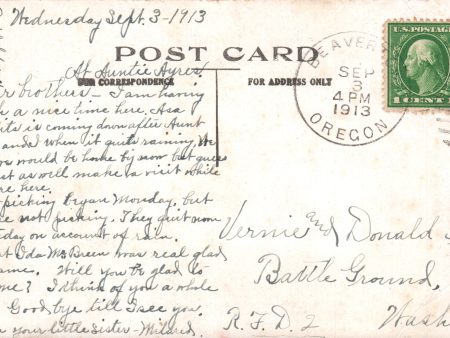 Wednesday Sept. 3-1913
POST CARD
At Auntie Ayres,
CORRESPONDENCE
FOR ADDRESS ONLY
brothers:- I am having
a nice time here. Asa
is coming down after Aunt
and when it quits raining. We
would be home by now but
as well make a visit while
here.
picking Bryan Monday, but
not picking. They quit
on account of rain.
Ida McBreen was real glad
came. Will you be glad to
me? I think of you a whole
Good bye till I see you.
your little sister - Mildred.
BEAVER
SEP
3
4 PM
1913
OREGON
U.S. POSTAGE
1 CENT 1
Vernie and Donald
Battle Ground,
Wash
R.F.D. 2